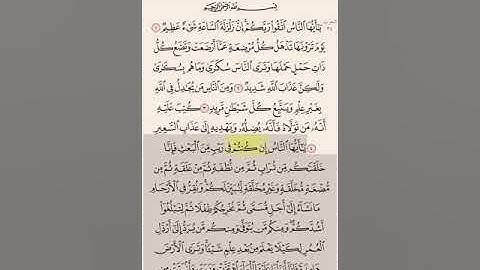 بِسْمِ ٱللَّهِ ٱلرَّحْمَٰنِ ٱلرَّحِيمِ
يَٰٓأَيُّهَا ٱلنَّاسُ ٱتَّقُوا۟ رَبَّكُمْ إِنَّ زَلْزَلَةَ ٱلسَّاعَةِ شَىْءٌ عَظِيمٌ ١
يَوْمَ تَرَوْنَهَا تَذْهَلُ كُلُّ مُرْضِعَةٍ عَمَّآ أَرْضَعَتْ وَتَضَعُ كُلُّ
ذَاتِ حَمْلٍ حَمْلَهَا وَتَرَى ٱلنَّاسَ سُكَٰرَىٰ وَمَا هُم بِسُكَٰرَىٰ
وَلَٰكِنَّ عَذَابَ ٱللَّهِ شَدِيدٌ ٢ وَمِنَ ٱلنَّاسِ مَن يُجَٰدِلُ فِى ٱللَّهِ
بِغَيْرِ عِلْمٍ وَيَتَّبِعُ كُلَّ شَيْطَٰنٍ مَّرِيدٍ ٣ كُتِبَ عَلَيْهِ
أَنَّهُۥ مَن تَوَلَّاهُ فَأَنَّهُۥ يُضِلُّهُۥ وَيَهْدِيهِ إِلَىٰ عَذَابِ ٱلسَّعِيرِ
٤ يَٰٓأَيُّهَا ٱلنَّاسُ إِن كُنتُمْ فِى رَيْبٍ مِّنَ ٱلْبَعْثِ فَإِنَّا
خَلَقْنَٰكُم مِّن تُرَابٍ ثُمَّ مِن نُّطْفَةٍ ثُمَّ مِنْ عَلَقَةٍ ثُمَّ مِن
مُّضْغَةٍ مُّخَلَّقَةٍ وَغَيْرِ مُخَلَّقَةٍ لِّنُبَيِّنَ لَكُمْ وَنُقِرُّ فِى ٱلْأَرْحَامِ
مَا نَشَآءُ إِلَىٰٓ أَجَلٍ مُّسَمًّى ثُمَّ نُخْرِجُكُمْ طِفْلًا ثُمَّ لِتَبْلُغُوٓا۟
أَشُدَّكُمْ وَمِنكُم مَّن يُتَوَفَّىٰ وَمِنكُم مَّن يُرَدُّ إِلَىٰٓ أَرْذَلِ
ٱلْعُمُرِ لِكَيْلَا يَعْلَمَ مِنۢ بَعْدِ عِلْمٍ شَيْـًٔا وَتَرَى ٱلْأَرْضَ